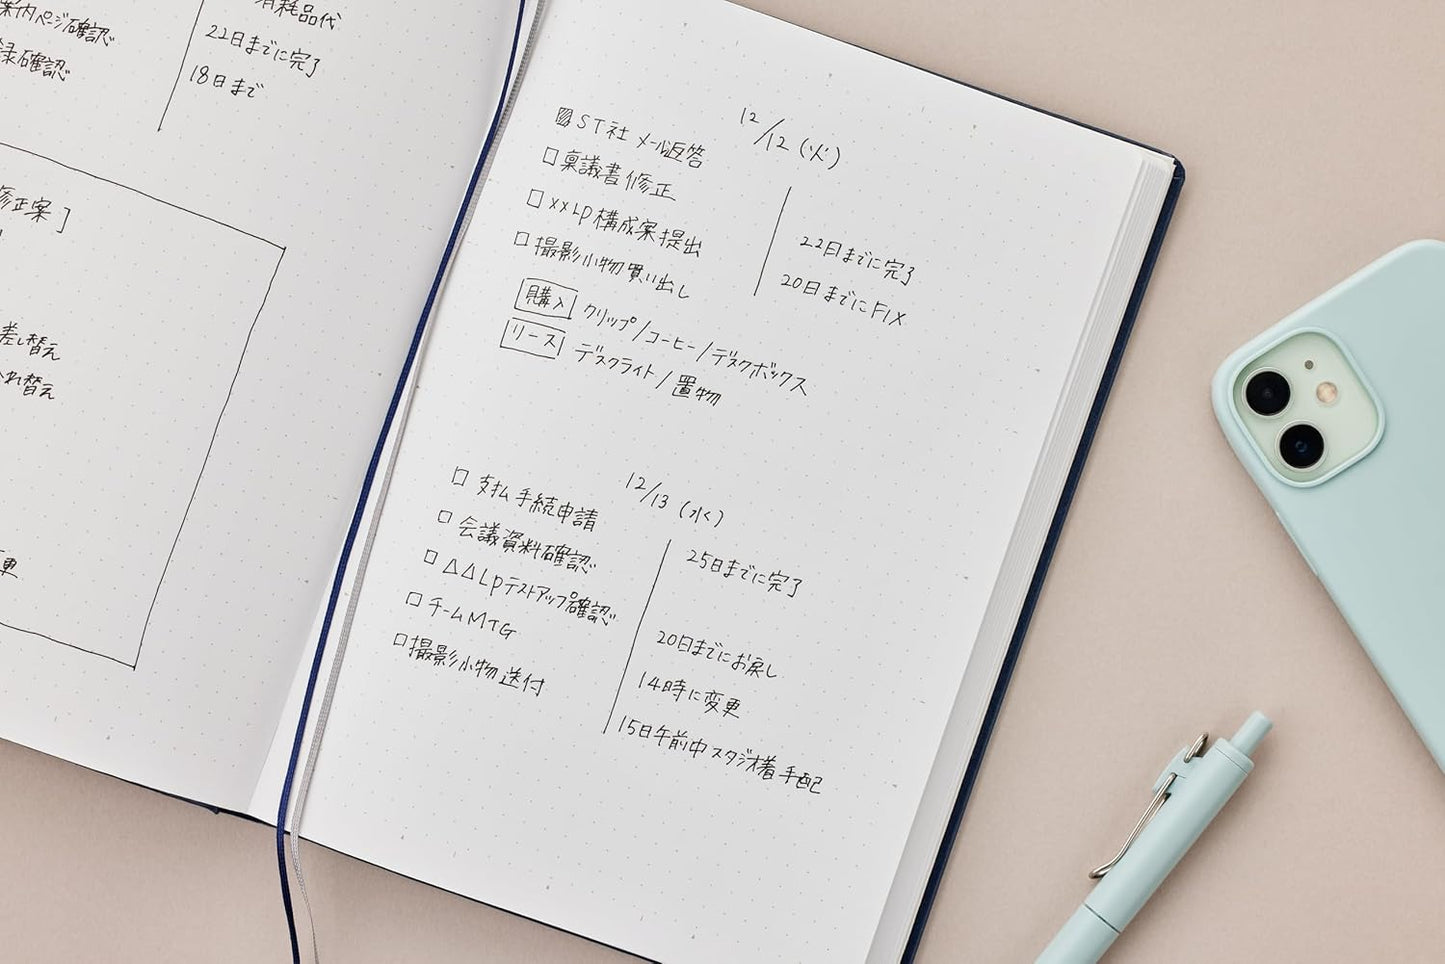 案内ページ確認
録確認
消耗品代
22日までに完了
18日まで
修正案]
差し替え
れ替え
更
12/12(火)
ST社 メール返答
稟議書修正
××LP構成案提出
22日までに完了
撮影小物買い出し
20日までにFIX
購入 クリップ/コーヒー/デスクボックス
リース デスクライト/置物
12/13(水)
支払手続申請
25日までに完了
会議資料確認
△△LPテストアップ確認
20日までにお戻し
チームMTG
14時に変更
撮影小物送付
15日午前中スタジオ着手配